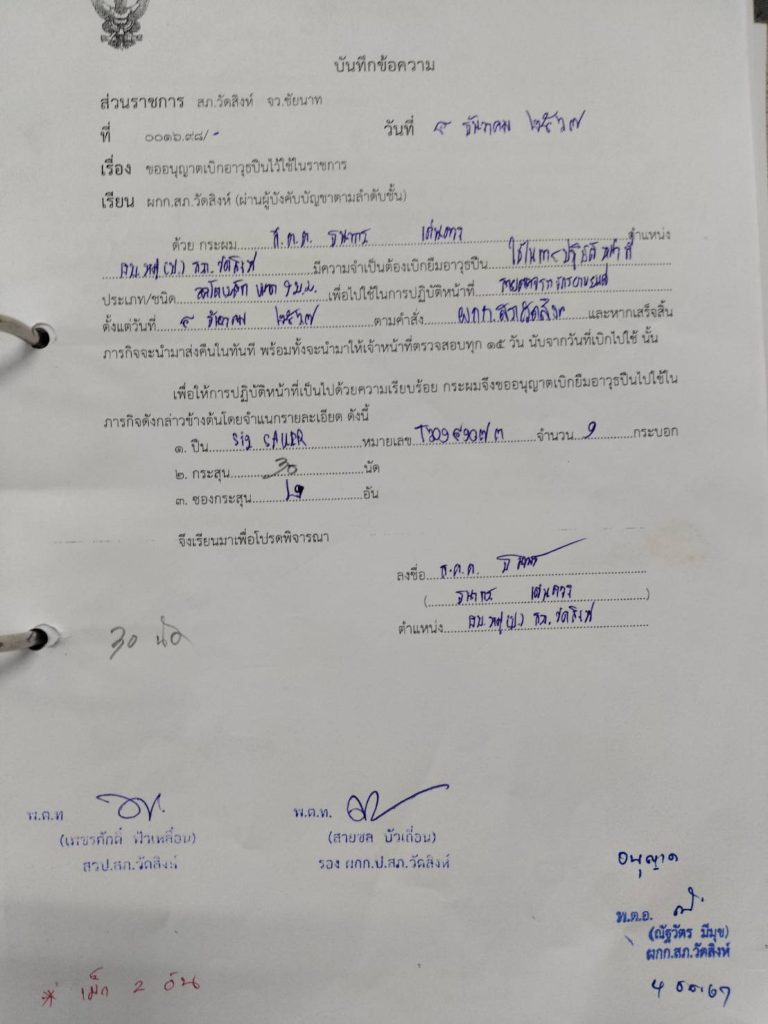 บันทึกข้อความ
ส่วนราชการ สภ.วัดสิงห์ จว.ชัยนาท
ที่ ๐๐๑๖.๙๘/- วันที่ ๔ ธันวาคม ๒๕๖๗
เรื่อง ขออนุญาตเบิกอาวุธปืนไว้ใช้ในราชการ
เรียน ผกก.สภ.วัดสิงห์ (ผ่านผู้บังคับบัญชาตามลำดับชั้น)
ด้วย กระผม ส.ต.ต. ธนากร ตำแหน่ง
ผบ.หมู่(ป.) สภ.วัดสิงห์ มีความจำเป็นต้องเบิกยืมอาวุธปืน ใช้ในการปฏิบัติหน้าที่
ประเภท/ชนิด ออโตเมติก ขนาด ๙ ม.ม. เพื่อไปใช้ในการปฏิบัติหน้าที่
ตั้งแต่วันที่ ๔ ธันวาคม ๒๕๖๗ ตามคำสั่ง ผกก.สภ.วัดสิงห์ และหากเสร็จสิ้น
ภารกิจจะนำมาส่งคืนในทันที พร้อมทั้งจะนำมาให้เจ้าหน้าที่ตรวจสอบทุก ๑๕ วัน นับจากวันที่เบิกไปใช้ นั้น
เพื่อให้การปฏิบัติหน้าที่เป็นไปด้วยความเรียบร้อย กระผมจึงขออนุญาตเบิกยืมอาวุธปืนไปใช้ใน
ภารกิจดังกล่าวข้างต้นโดยจำแนกรายละเอียด ดังนี้
๑. ปืน Sig SAUER หมายเลข จำนวน ๑ กระบอก
๒. กระสุน 30 นัด
๓. ซองกระสุน ๒ อัน
จึงเรียนมาเพื่อโปรดพิจารณา
ลงชื่อ ส.ต.ต.
( ธนากร )
ตำแหน่ง ผบ.หมู่(ป.) สภ.วัดสิงห์
30 นัด
พ.ต.ท.
(เพชรศักดิ์ ฟ้าเหลื่อน)
สวป.สภ.วัดสิงห์
พ.ต.ท.
(สายชล บัวเถื่อน)
รอง ผกก.ป.สภ.วัดสิงห์
อนุญาต
พ.ต.อ.
(ณัฐวัตร มีมุข)
ผกก.สภ.วัดสิงห์
4 ธ.ค.67
* เม็ก 2 อัน